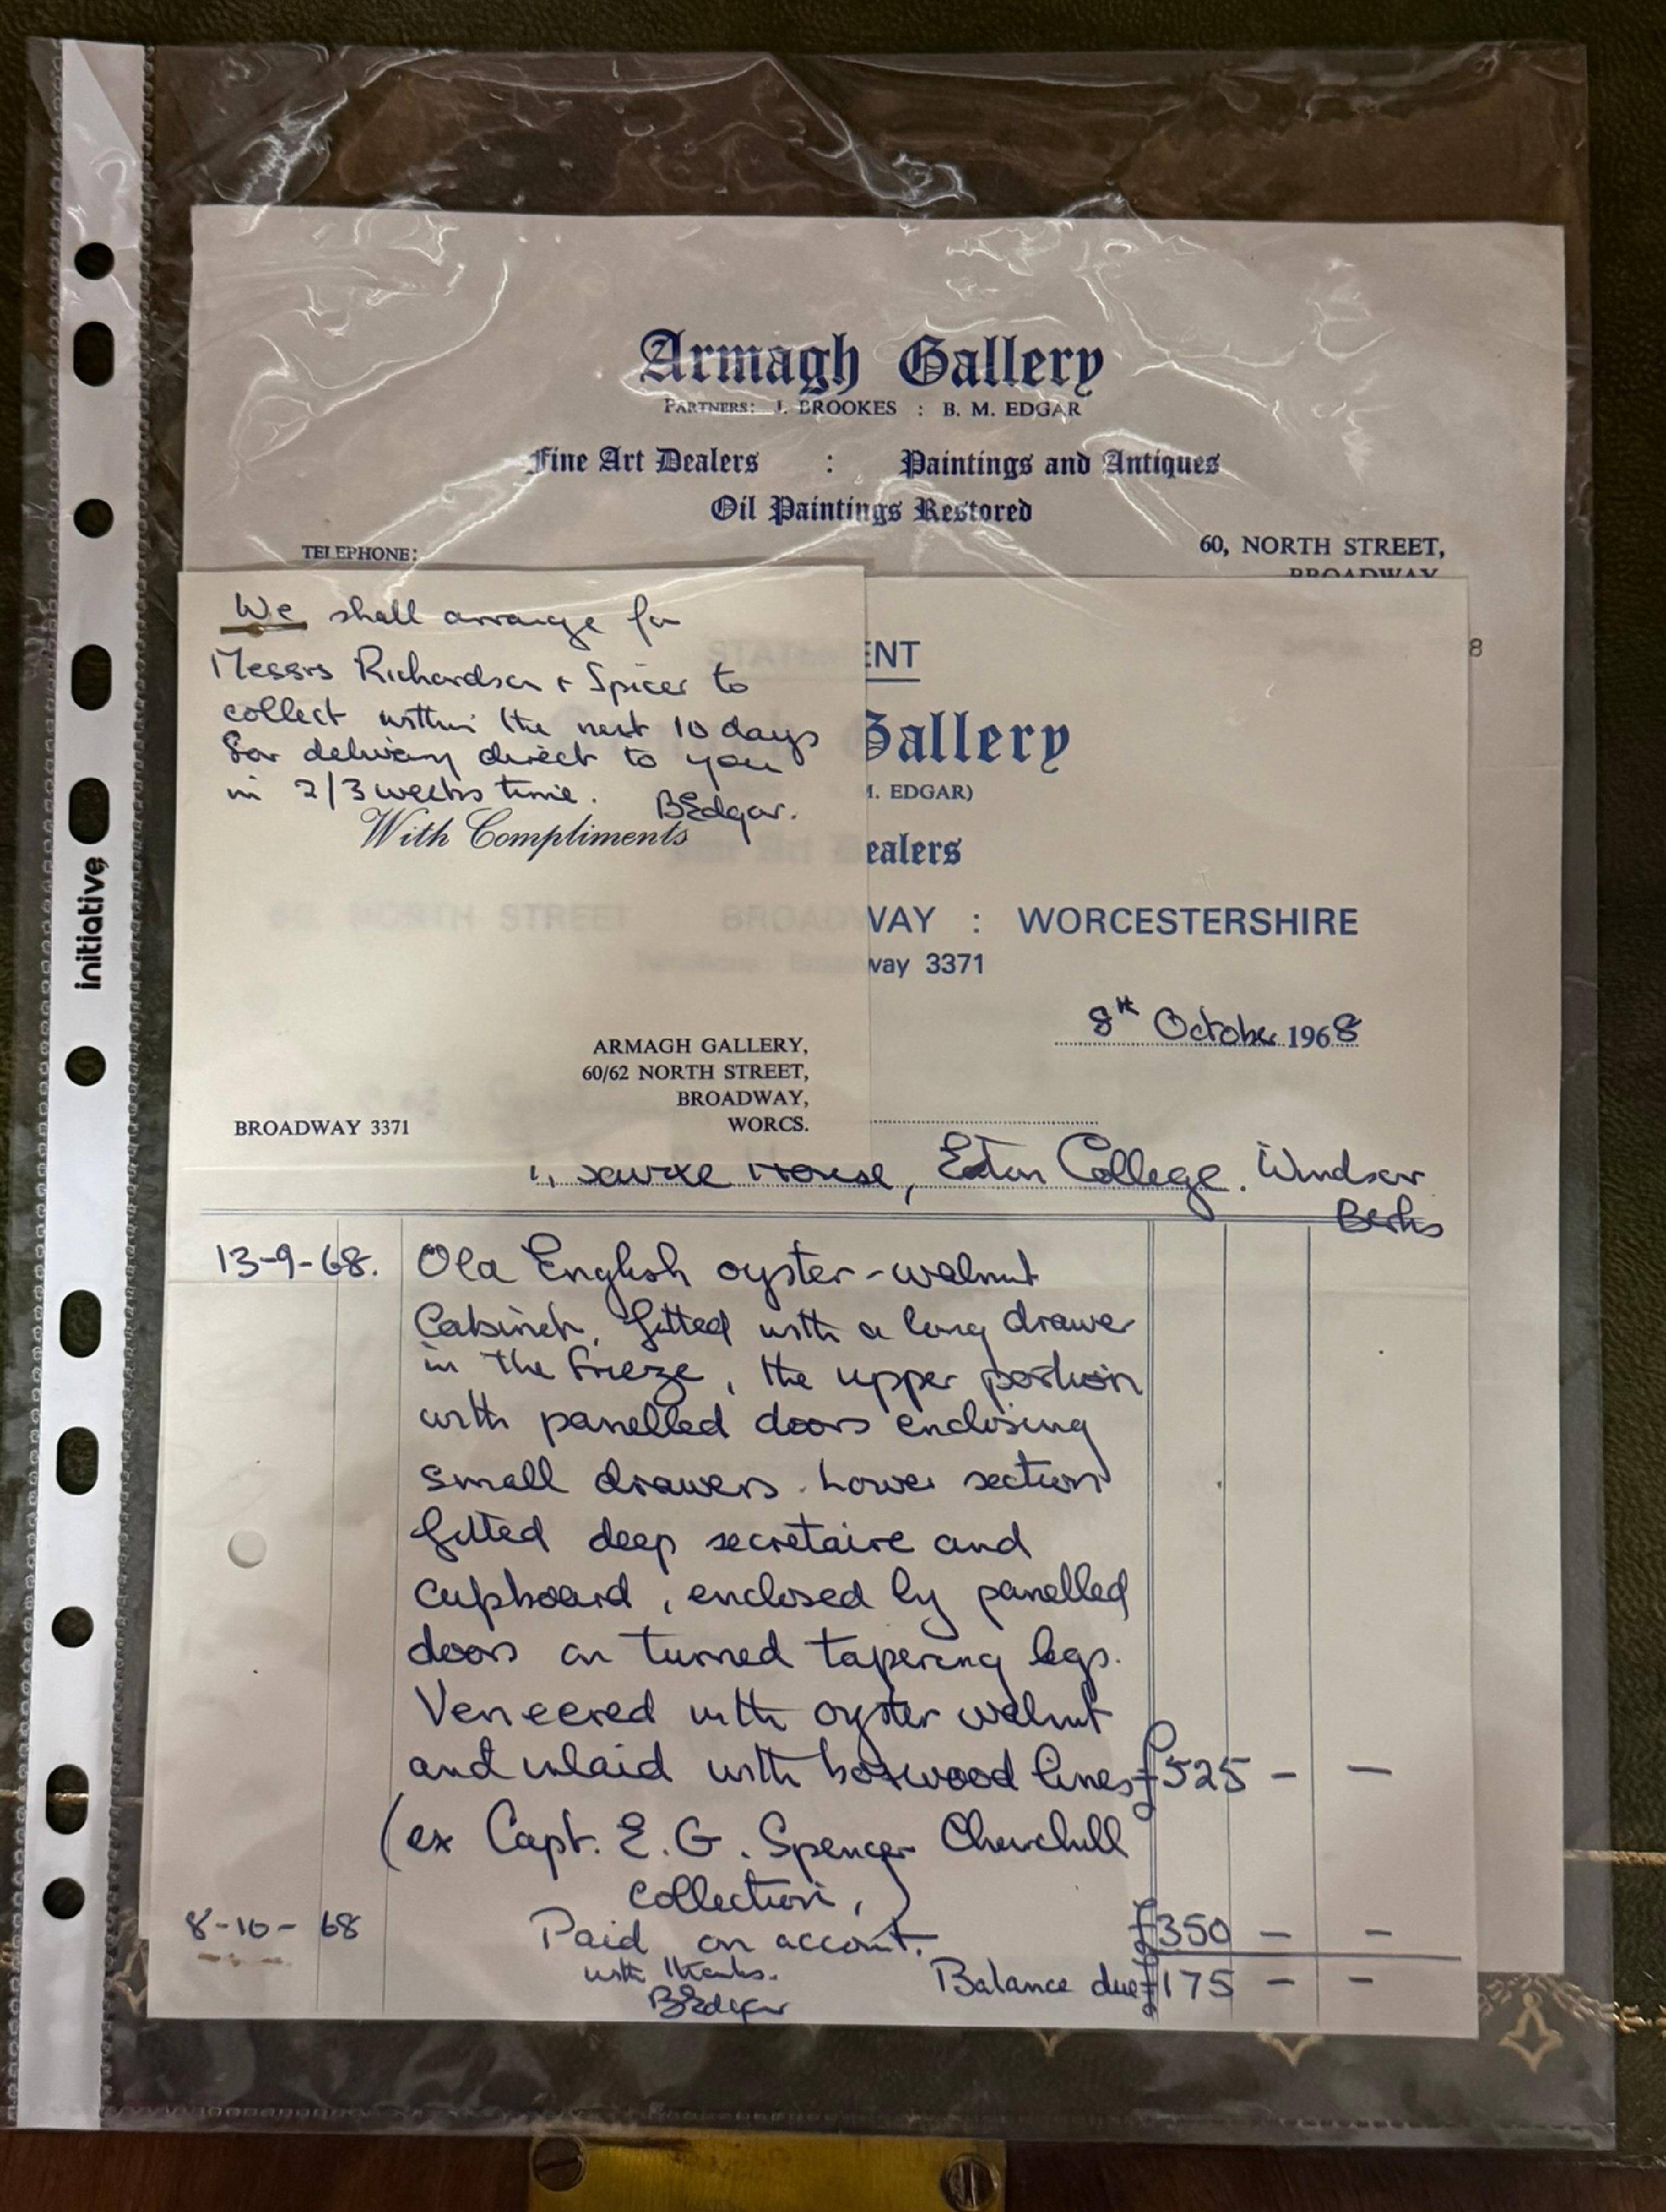 Armagh Gallery
PARTNERS: J. BROOKES : B. M. EDGAR
Fine Art Dealers : Paintings and Antiques
Oil Paintings Restored
TELEPHONE:
60, NORTH STREET,
BROADWAY
We shall arrange for
Messrs Richardson & Spicer to
collect within the next 10 days
for delivery direct to you
in 2/3 weeks time.
BEdgar.
With Compliments
ARMAGH GALLERY,
60/62 NORTH STREET,
BROADWAY,
WORCS.
BROADWAY 3371
8
STATEMENT
Gallery
M. EDGAR)
Dealers
60 NORTH STREET : BROADWAY : WORCESTERSHIRE
Broadway 3371
8th October 1968
House, Eton College. Windsor
Berks
13-9-68. Old English oyster-walnut
Cabinet, fitted with a long drawer
in the frieze, the upper portion
with panelled doors enclosing
small drawers. Lower section
fitted deep secretaire and
cupboard, enclosed by panelled
doors on turned tapering legs.
Veneered with oyster walnut
and inlaid with boxwood lines £525 - -
(ex Capt. E. G. Spencer Churchill
collection,)
8-10-68 Paid on account. £350 - -
with thanks.
BEdgar
Balance due £175 - -
initiative